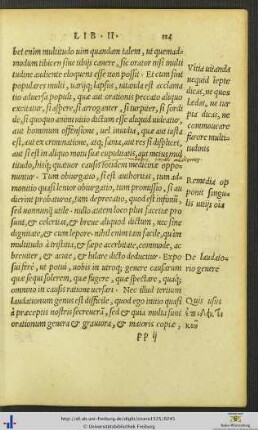 LIB. II. 114
bet enim multitudo uim quandam talem, ut quemad-
modum tibicen sine tibijs canere, sic orator nisi multi
tudine audiente eloquens esse non possit. Et cum sint
populares multi, uarijq; lapsus, uitanda est acclama
tio aduersa populi, quæ aut orationis peccato aliquo
excitatur, si asperè, si arroganter, si turpiter, si sordi
de, si quoquo animi uitio dictum esse aliquid uideatur,
aut hominum offensione, uel inuidia, quæ aut iusta
est, aut ex criminatione, atq; fama, aut res si displicet,
aut si est in aliquo motu suæ cupiditatis, aut metus mul
titudo, hisq; quatuor causis totidem medicinæ oppo-
nuntur. Tum obiurgatio, si est authoritas, tum ad-
monitio quasi lenior obiurgatio, tum promissio, si au
dierint probaturos, tum deprecatio, quod est infimū,
sed nonnunq̃ utile. nullo autem loco plus facetiæ pro
sunt, & celeritas, & breue aliquod dictum, nec sine
dignitate, & cum lepore. nihil enim tam facile, quàm
multitudo à tristitia, & sæpe acerbitate, commode, ac
breuiter, & acute, & hilare dicto deducitur. Expo
sui ferè, ut potui, uobis in utroq; genere causarum
quæ sequi solerem, quæ fugere, quæ spectare, quaq;
omnino in causis ratione uersari. Nec illud tertium
laudationum genus est difficile, quod ego initio quasi
à præceptis nostris secreuerā, sed & quia multa sunt
orationum genera & grauiora, & maioris copiæ,
PP ij
Vitia uitanda
nequid lepte
dicas, ne quos
Lædas, ne tur
pia dicas, ne
commouere
furore multi-
tudinis
Remedia op
ponit singu
lis uitijs
De laudatio-
nis genere
http://dl.ub.uni-freiburg.de/diglit/cicero1525/0745
© Universitätsbibliothek Freiburg